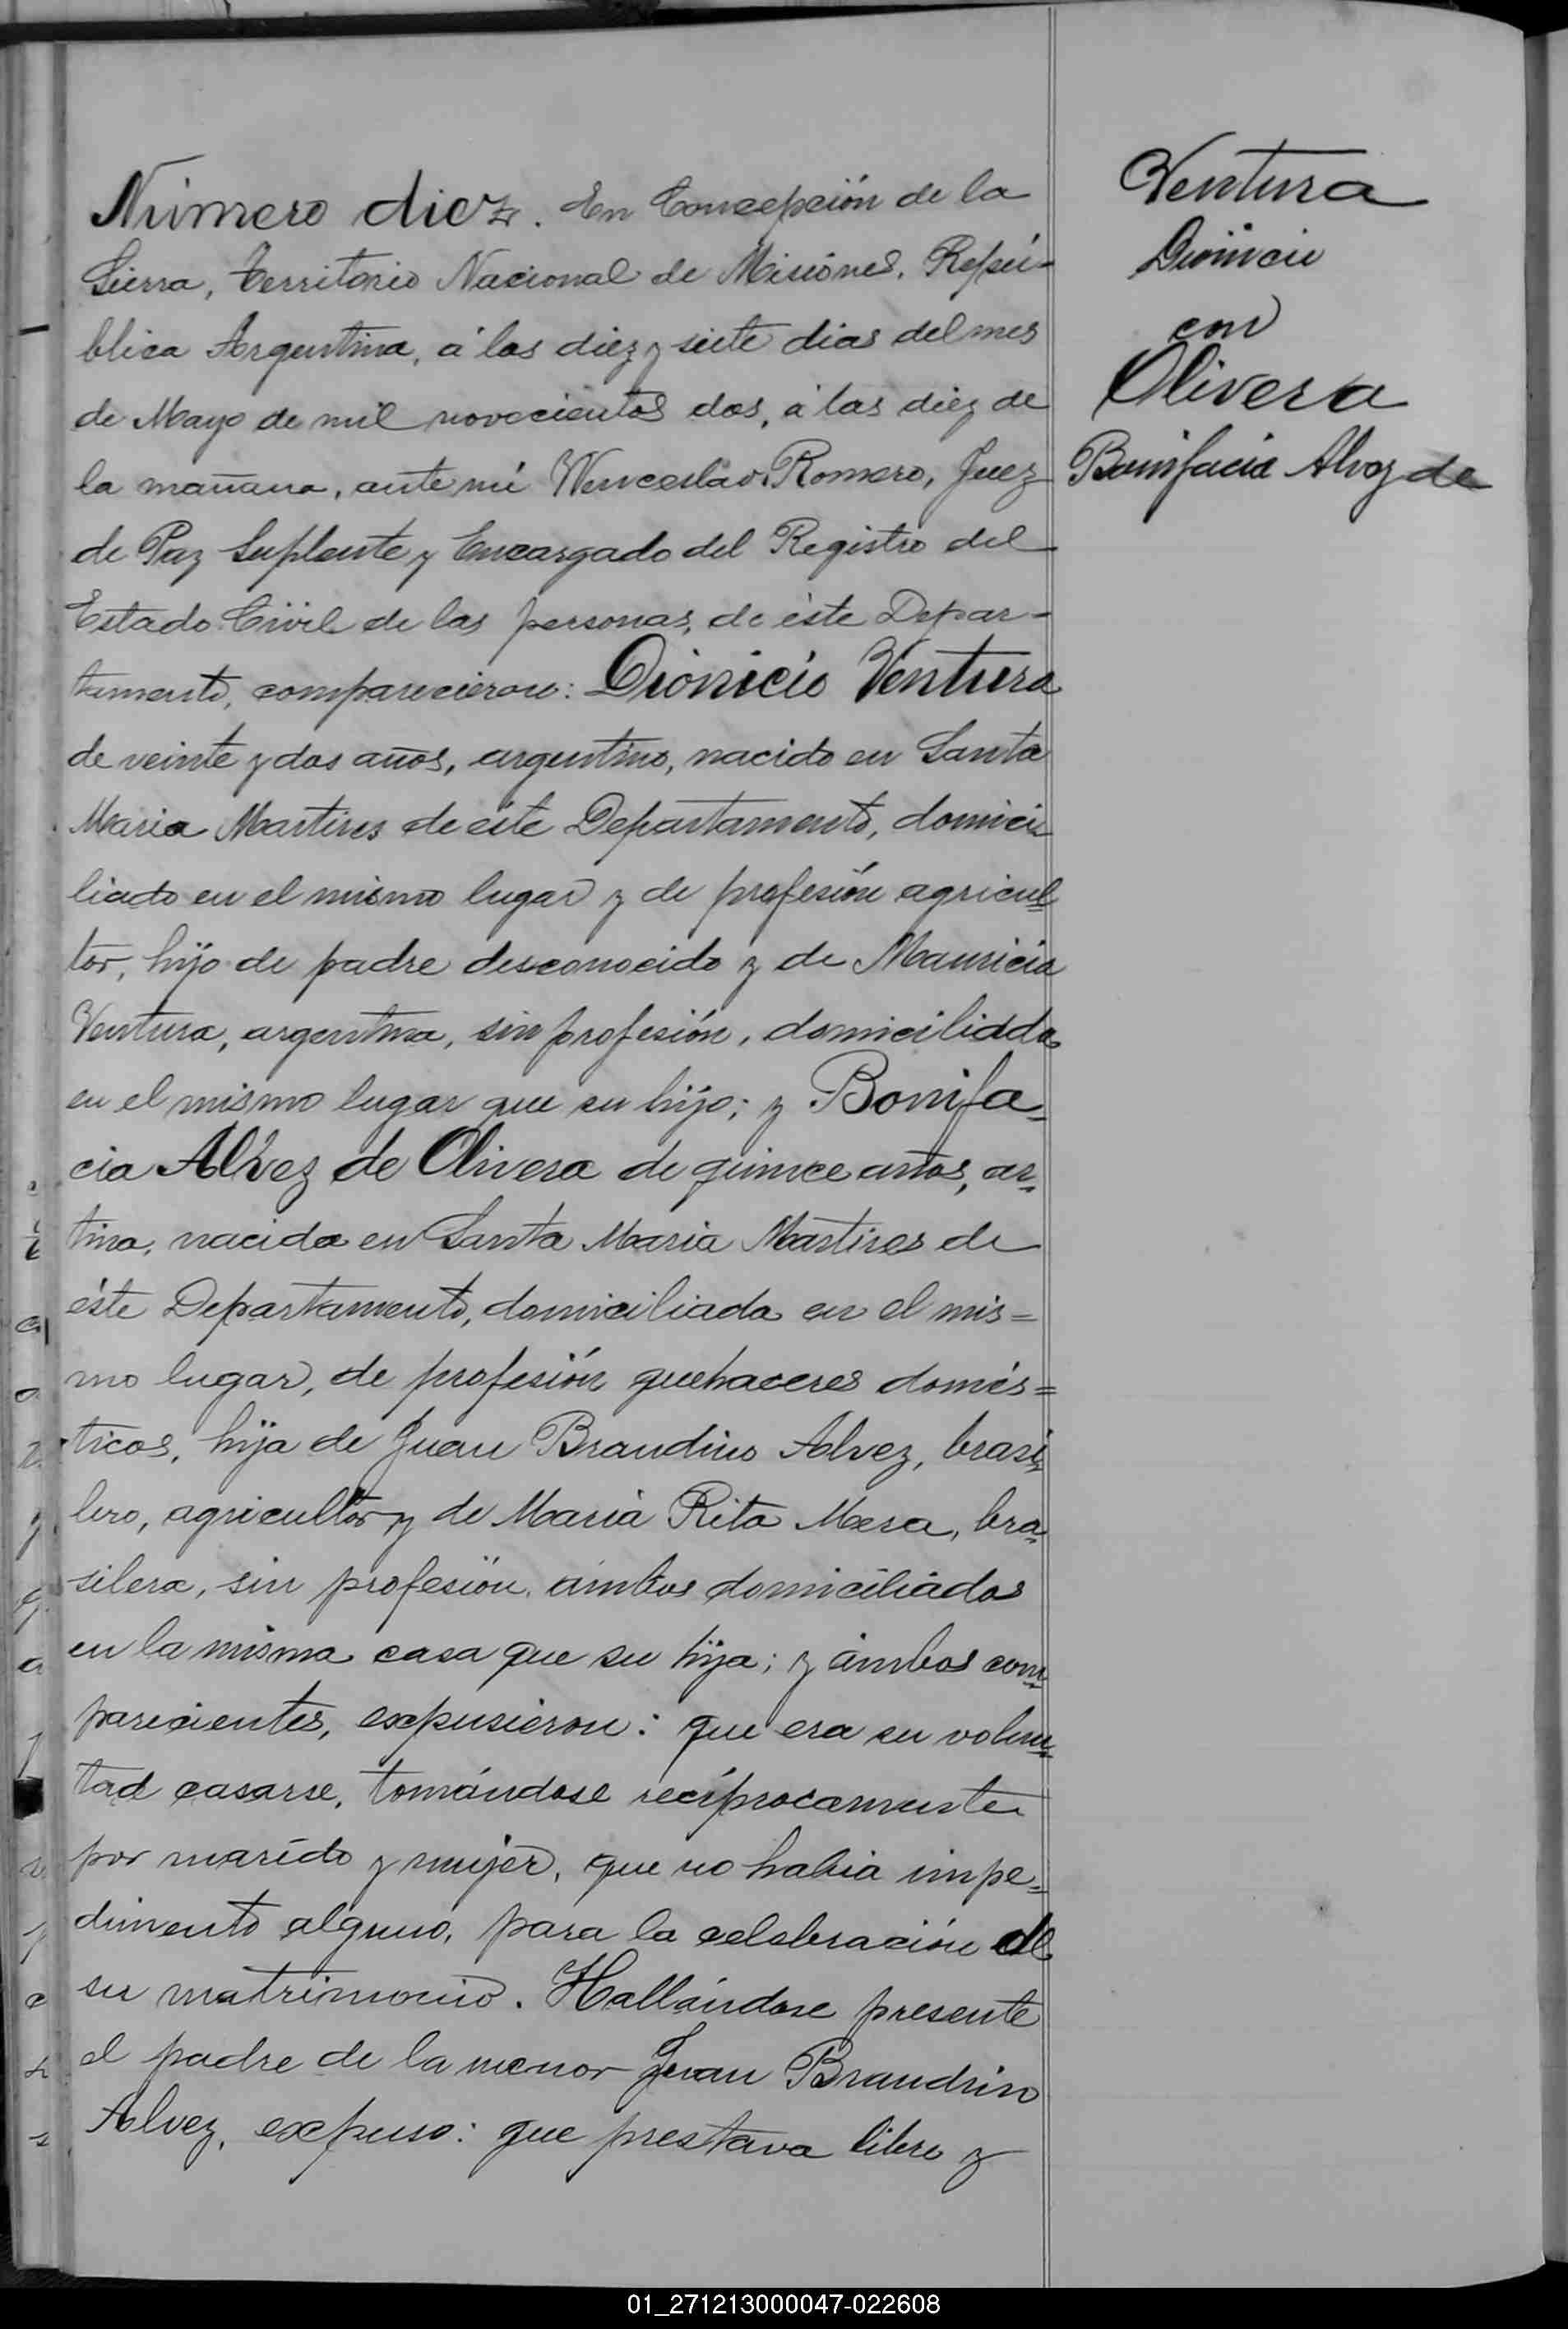 Número diez. En Concepción de la
Sierra, Territorio Nacional de Misiones, Repú-
blica Argentina, á los diez y siete dias del mes
de Mayo de mil novecientos dos, á las diez de
la mañana, ante mi Wenceslao Romero, Juez
de Paz Suplente y Encargado del Registro del
Estado Civil de las personas, de éste Depar-
tamento, comparecieron: Dionicio Ventura
de veinte y dos años, argentino, nacido en Santa
Maria Martires de éste Departamento, domici-
liado en el mismo lugar y de profesión agricul-
tor, hijo de padre desconocido y de Mauricia
Ventura, argentina, sin profesión, domiciliada
en el mismo lugar que su hijo; y Bonifa-
cia Alvez de Olivera de quince años, ar-
tina, nacida en Santa Maria Martires de
éste Departamento, domiciliada en el mis=
mo lugar, de profesión quehaceres domés=
ticos, hija de Juan Brandino Alvez, brasi-
lero, agricultor y de Maria Rita Mesa, bra-
silera, sin profesión, ámbos domiciliados
en la misma casa que su hija; y ámbos com-
parecientes, expusieron: que era su volun-
tad casarse, tomándose recíprocamente
por marido y mujer, que no habia impe-
dimento alguno, para la celebración de
su matrimonio. Hallándose presente
el padre de la menor Juan Brandino
Alvez, expuso: que prestava libre y
Ventura
Dionicio
con
Olivera
Bonifacia Alvez de
01_271213000047-022608